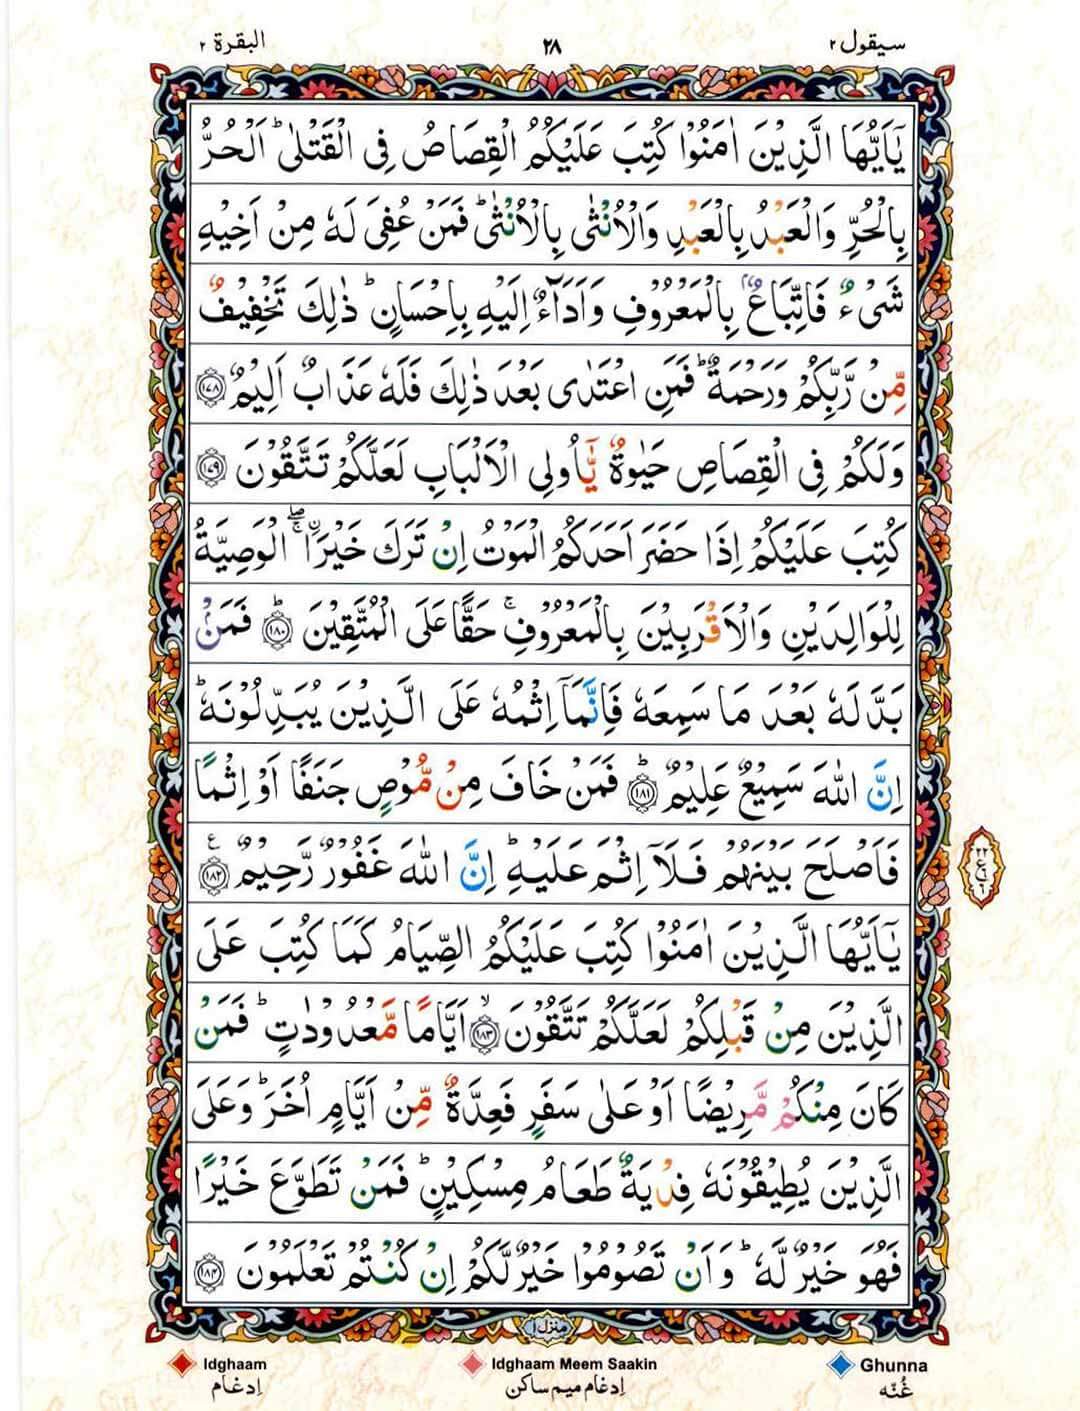 سيقول ٢
٢٨
البقرة ٢
يٰٓاَيُّهَا الَّذِيْنَ اٰمَنُوْا كُتِبَ عَلَيْكُمُ الْقِصَاصُ فِى الْقَتْلٰىؕ اَلْحُرُّ
بِالْحُرِّ وَالْعَبْدُ بِالْعَبْدِ وَالْاُنْثٰى بِالْاُنْثٰىؕ فَمَنْ عُفِىَ لَهٗ مِنْ اَخِيْهِ
شَىْءٌ فَاتِّبَاعٌۢ بِالْمَعْرُوْفِ وَاَدَآءٌ اِلَيْهِ بِاِحْسَانٍؕ ذٰلِكَ تَخْفِيْفٌ
مِّنْ رَّبِّكُمْ وَرَحْمَةٌؕ فَمَنِ اعْتَدٰى بَعْدَ ذٰلِكَ فَلَهٗ عَذَابٌ اَلِيْمٌ ۝١٧٨
وَلَكُمْ فِى الْقِصَاصِ حَيٰوةٌ يّٰٓاُولِى الْاَلْبَابِ لَعَلَّكُمْ تَتَّقُوْنَ ۝١٧٩
كُتِبَ عَلَيْكُمْ اِذَا حَضَرَ اَحَدَكُمُ الْمَوْتُ اِنْ تَرَكَ خَيْرَا ۖۚ اۨلْوَصِيَّةُ
لِلْوَالِدَيْنِ وَالْاَقْرَبِيْنَ بِالْمَعْرُوْفِۚ حَقًّا عَلَى الْمُتَّقِيْنَؕ ۝١٨٠ فَمَنْۢ
بَدَّلَهٗ بَعْدَ مَا سَمِعَهٗ فَاِنَّمَآ اِثْمُهٗ عَلَى الَّذِيْنَ يُبَدِّلُوْنَهٗؕ
اِنَّ اللّٰهَ سَمِيْعٌ عَلِيْمٌؕ ۝١٨١ فَمَنْ خَافَ مِنْ مُّوْصٍ جَنَفًا اَوْ اِثْمًا
فَاَصْلَحَ بَيْنَهُمْ فَلَآ اِثْمَ عَلَيْهِؕ اِنَّ اللّٰهَ غَفُوْرٌ رَّحِيْمٌ ۝١٨٢ ع
يٰٓاَيُّهَا الَّذِيْنَ اٰمَنُوْا كُتِبَ عَلَيْكُمُ الصِّيَامُ كَمَا كُتِبَ عَلَى
الَّذِيْنَ مِنْ قَبْلِكُمْ لَعَلَّكُمْ تَتَّقُوْنَۙ ۝١٨٣ اَيَّامًا مَّعْدُوْدٰتٍؕ فَمَنْ
كَانَ مِنْكُمْ مَّرِيْضًا اَوْ عَلٰى سَفَرٍ فَعِدَّةٌ مِّنْ اَيَّامٍ اُخَرَؕ وَعَلَى
الَّذِيْنَ يُطِيْقُوْنَهٗ فِدْيَةٌ طَعَامُ مِسْكِيْنٍؕ فَمَنْ تَطَوَّعَ خَيْرًا
فَهُوَ خَيْرٌ لَّهٗؕ وَاَنْ تَصُوْمُوْا خَيْرٌ لَّكُمْ اِنْ كُنْتُمْ تَعْلَمُوْنَ ۝١٨٤
منزل ١
Idghaam
اِدغام
Idghaam Meem Saakin
اِدغام میم ساکن
Ghunna
غُنّه